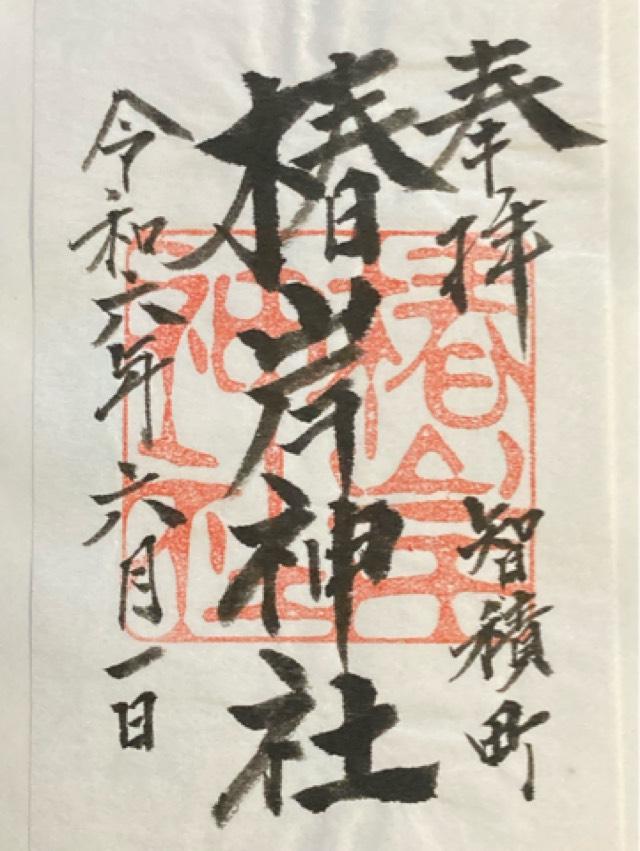 奉拝
智積町
椿岸神社
令和六年六月一日
椿岸
神社